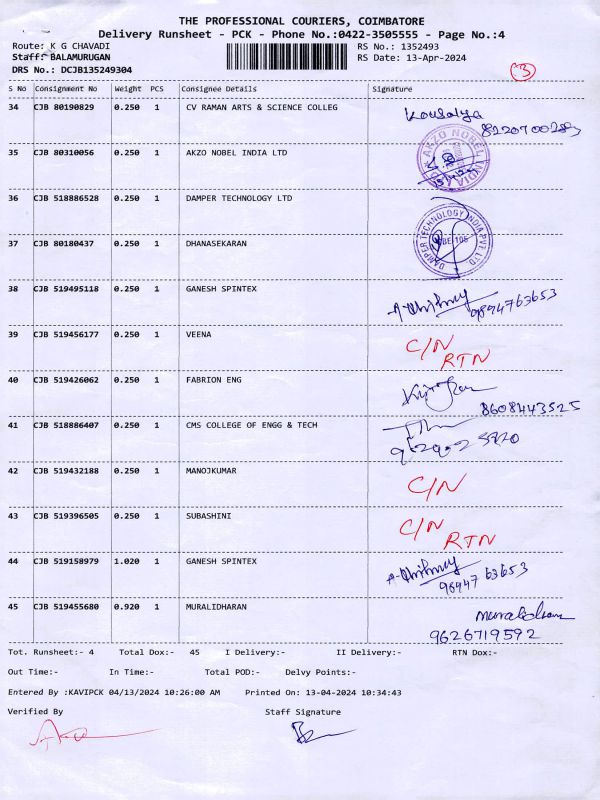 THE PROFESSIONAL COURIERS, COIMBATORE
Delivery Runsheet - PCK - Phone No.:0422-3505555 - Page No.:4
Route: K G CHAVADI
RS No.: 1352493
Staff: BALAMURUGAN
RS Date: 13-Apr-2024
DRS No.: DCJB135249304
3
S No Consignment No Weight PCS Consignee Details Signature
34 CJB 80190829 0.250 1 CV RAMAN ARTS & SCIENCE COLLEG
Kousalya
35 CJB 80310056 0.250 1 AKZO NOBEL INDIA LTD
AKZO NOBEL INDIA
36 CJB 518886528 0.250 1 DAMPER TECHNOLOGY LTD
DAMPER TECHNOLOGY INDIA PVT. LTD
37 CJB 80180437 0.250 1 DHANASEKARAN
38 CJB 519495118 0.250 1 GANESH SPINTEX
9894763653
39 CJB 519456177 0.250 1 VEENA
C/N
RTN
40 CJB 519426062 0.250 1 FABRION ENG
8608443525
41 CJB 518886407 0.250 1 CMS COLLEGE OF ENGG & TECH
42 CJB 519432188 0.250 1 MANOJKUMAR
C/N
43 CJB 519396505 0.250 1 SUBASHINI
C/N
RTN
44 CJB 519158979 1.020 1 GANESH SPINTEX
98947 63653
45 CJB 519455680 0.920 1 MURALIDHARAN
9626719592
Tot. Runsheet:- 4 Total Dox:- 45 I Delivery:- II Delivery:- RTN Dox:-
Out Time:- In Time:- Total POD:- Delvy Points:-
Entered By :KAVIPCK 04/13/2024 10:26:00 AM Printed On: 13-04-2024 10:34:43
Verified By Staff Signature